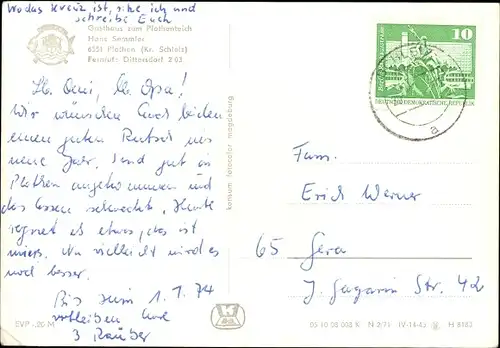 Wo das Kreuz ist, sitze ich und
schreibe Euch
Gasthaus zum Plothenteich
Hans Semmler
6551 Plothen (Kr. Schleiz)
Fernruf: Dittersdorf 2 03
10
DEUTSCHE DEMOKRATISCHE REPUBLIK
Lb. Omi, lb. Opa!
Wir wünschen Euch beiden
einen guten Rutsch ins
neue Jahr. Sind gut in
Plothen angekommen und
das Essen schmeckt. Heute
regnet es etwas, das ist
mies. Na vielleicht wird es
noch besser.
Bis zum 1.1.74
verbleiben Eure
3 Räuber
konsum fotocolor magdeburg
Fam.
Erich Werner
65 Gera
J. Gagarin Str. 42
EVP -,20 M
K
H 8182